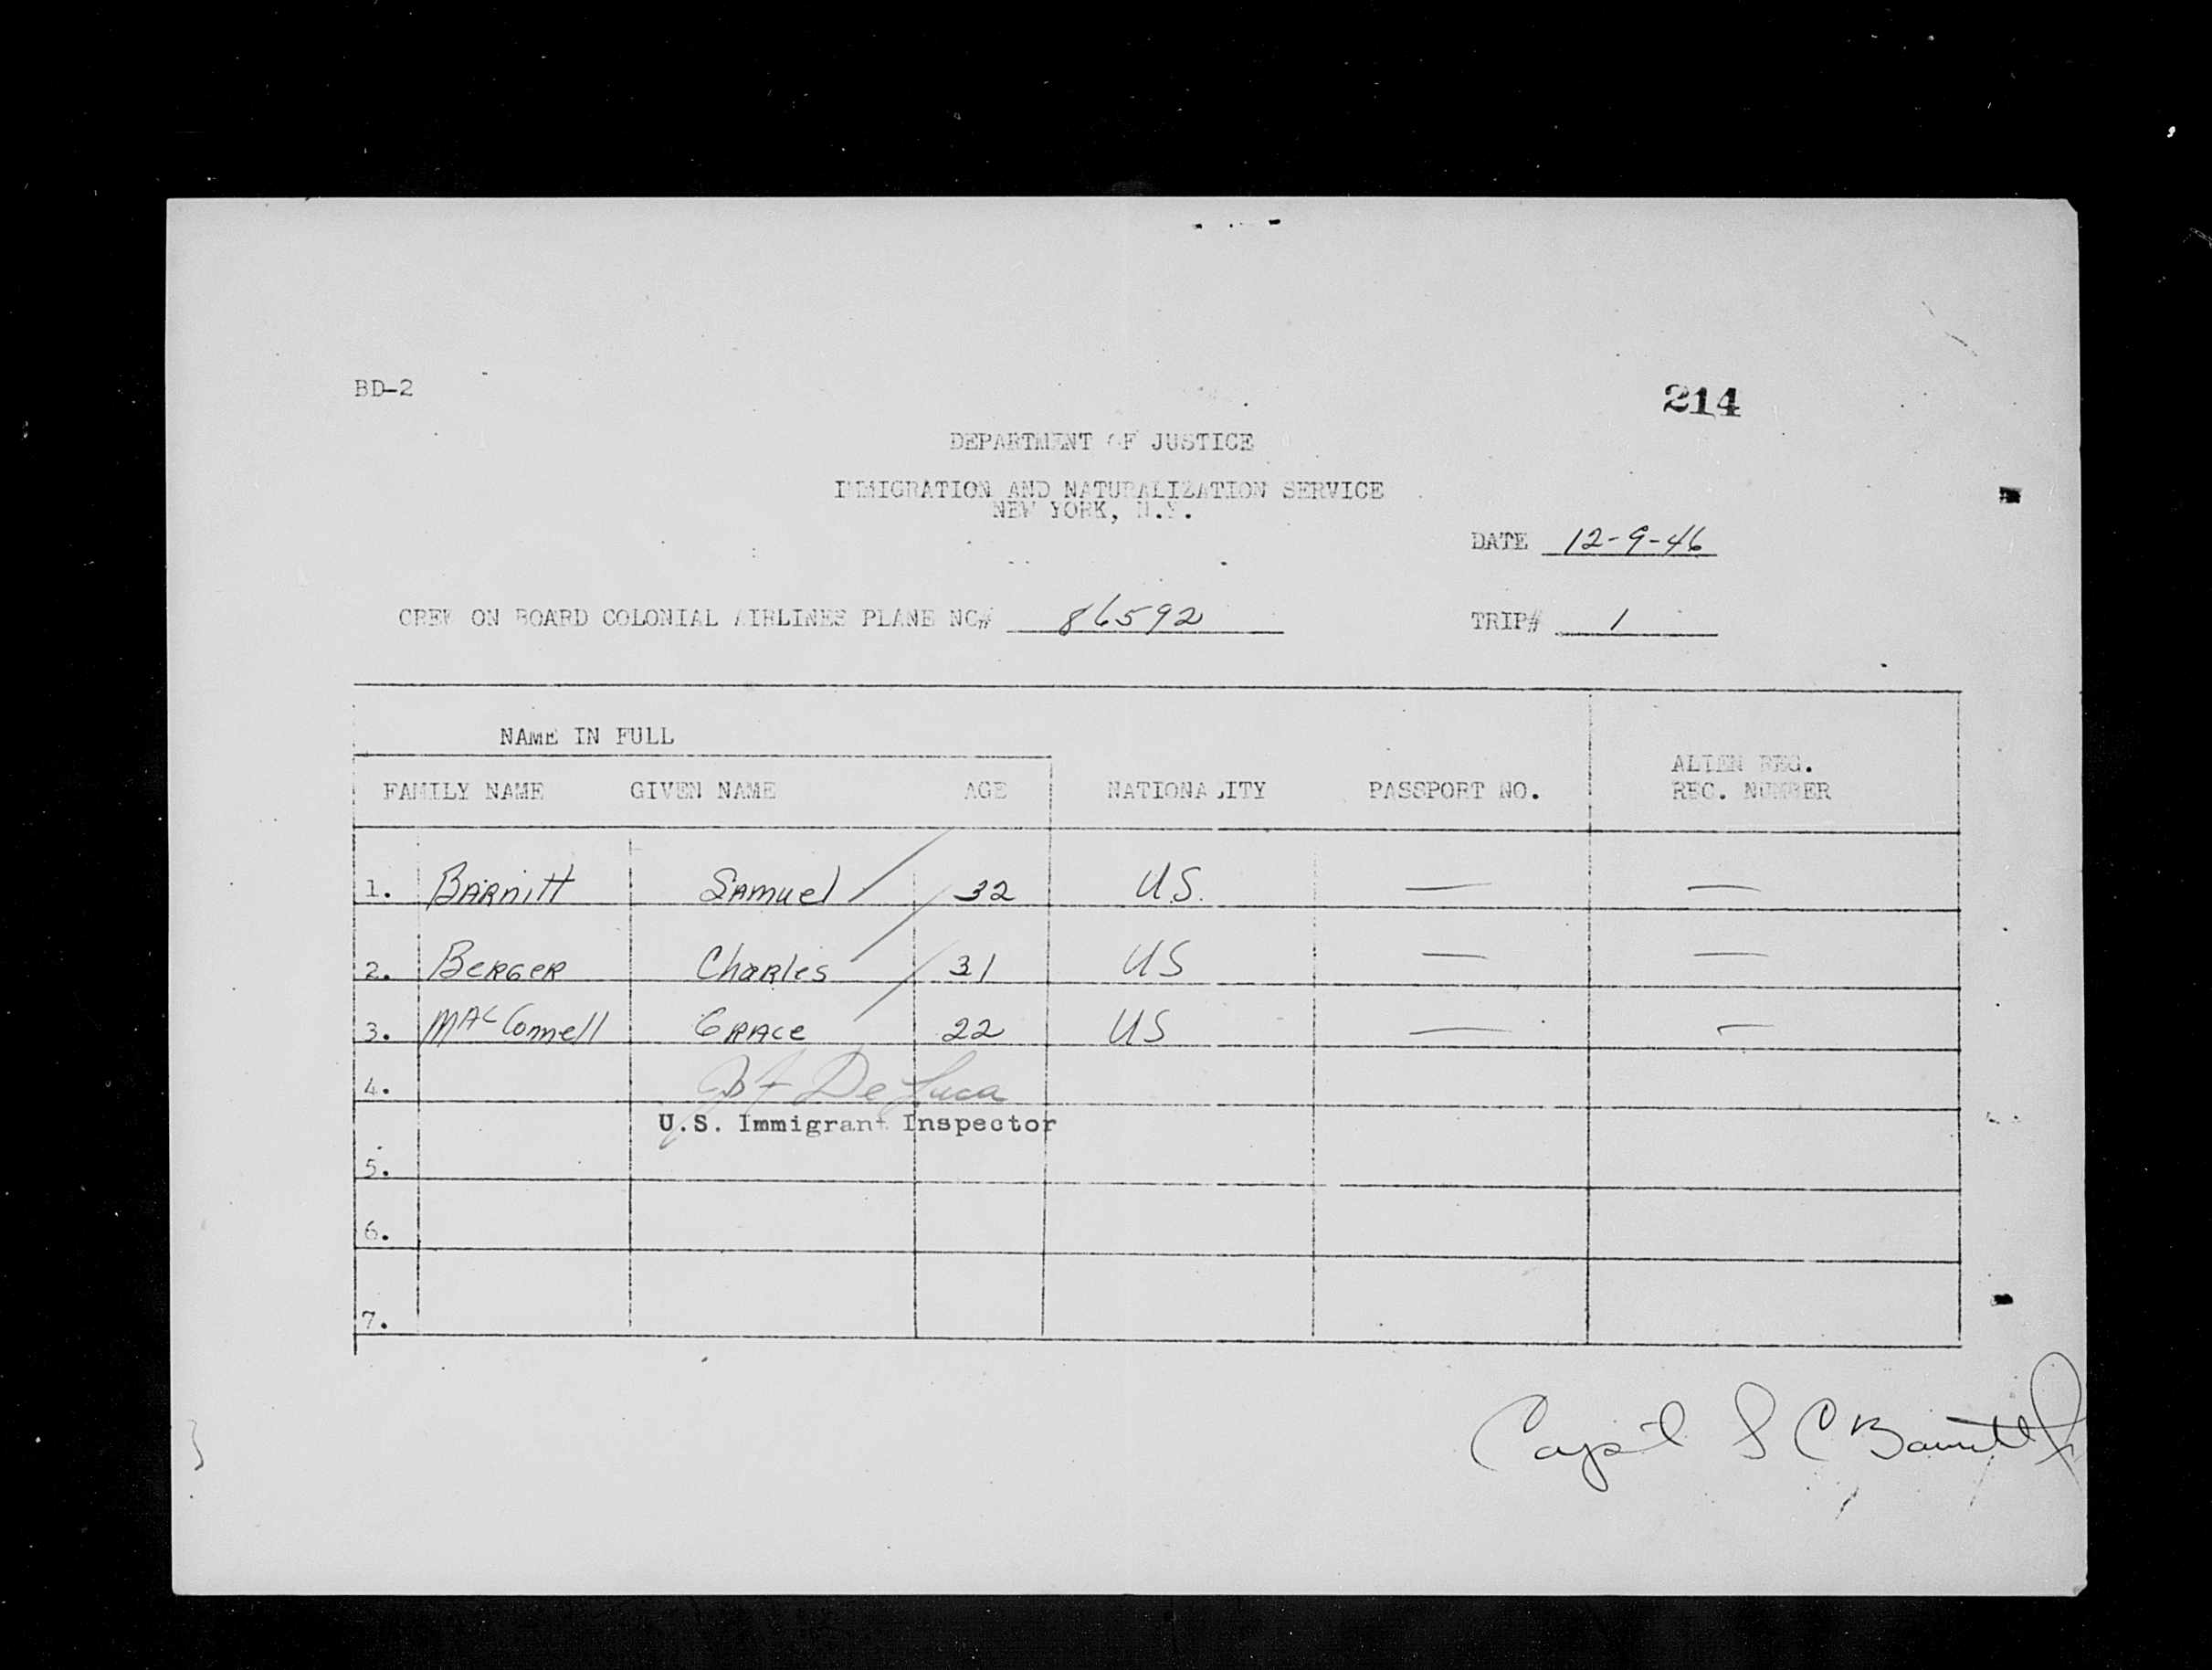 BD-2
214
DEPARTMENT OF JUSTICE
IMMIGRATION AND NATURALIZATION SERVICE
NEW YORK, N.Y.
DATE 12-9-46
CREW ON BOARD COLONIAL AIRLINES PLANE NC# 86592 TRIP# 1
NAME IN FULL
ALIEN REG.
FAMILY NAME GIVEN NAME AGE NATIONALITY PASSPORT NO. REC. NUMBER
1. Barnitt Samuel 32 US. — —
2. Berger Charles 31 US — —
3. MacConnell Grace 22 US — —
4. De Luca
U.S. Immigrant Inspector
5.
6.
7.
Capt S C Barnitt Jr